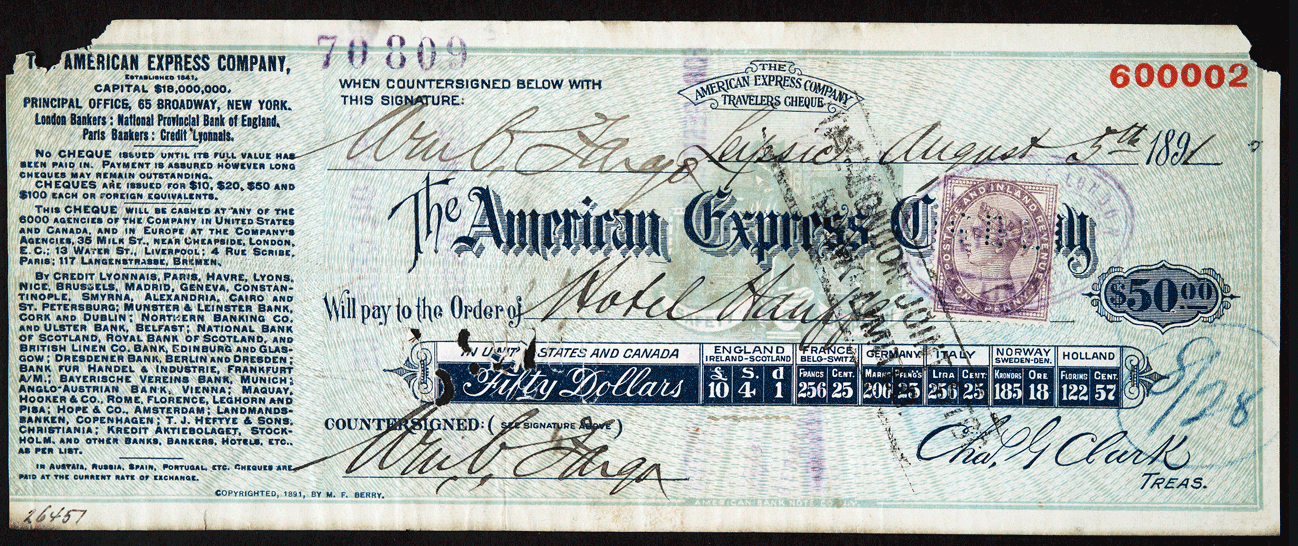 70809
600002
THE AMERICAN EXPRESS COMPANY,
ESTABLISHED 1841.
CAPITAL $18,000,000.
PRINCIPAL OFFICE, 65 BROADWAY, NEW YORK.
London Bankers: National Provincial Bank of England.
Paris Bankers: Credit Lyonnais.
NO CHEQUE ISSUED UNTIL ITS FULL VALUE HAS
BEEN PAID IN. PAYMENT IS ASSURED HOWEVER LONG
CHEQUES MAY REMAIN OUTSTANDING.
CHEQUES ARE ISSUED FOR $10, $20, $50 AND
$100 EACH OR FOREIGN EQUIVALENTS.
THIS CHEQUE WILL BE CASHED AT ANY OF THE
6000 AGENCIES OF THE COMPANY IN UNITED STATES
AND CANADA, AND IN EUROPE AT THE COMPANY'S
AGENCIES, 35 MILK ST., NEAR CHEAPSIDE, LONDON,
E. C.; 13 WATER ST., LIVERPOOL; 4 RUE SCRIBE,
PARIS; 117 LANGENSTRASSE, BREMEN.
BY CREDIT LYONNAIS, PARIS, HAVRE, LYONS,
NICE, BRUSSELS, MADRID, GENEVA, CONSTAN-
TINOPLE, SMYRNA, ALEXANDRIA, CAIRO AND
ST. PETERSBURG; MUNSTER & LEINSTER BANK,
CORK AND DUBLIN; NORTHERN BANKING CO.
AND ULSTER BANK, BELFAST; NATIONAL BANK
OF SCOTLAND, ROYAL BANK OF SCOTLAND, AND
BRITISH LINEN CO. BANK, EDINBURG AND GLAS-
GOW; DRESDENER BANK, BERLIN AND DRESDEN;
BANK FUR HANDEL & INDUSTRIE, FRANKFURT
A/M.; BAYERISCH VEREINS BANK, MUNICH;
ANGLO-AUSTRIAN BANK, VIENNA; MAQUAY,
HOOKER & CO., ROME, FLORENCE, LEGHORN AND
PISA; HOPE & CO., AMSTERDAM; LANDMANDS-
BANKEN, COPENHAGEN; T. J. HEFTYE & SONS,
CHRISTIANIA; KREDIT AKTIEBOLAGET, STOCK-
HOLM, AND OTHER BANKS, BANKERS, HOTELS, ETC.,
AS PER LIST.
IN AUSTRIA, RUSSIA, SPAIN, PORTUGAL, ETC. CHEQUES ARE
PAID AT THE CURRENT RATE OF EXCHANGE.
COPYRIGHTED, 1891, BY M. F. BERRY.
26457
WHEN COUNTERSIGNED BELOW WITH
THIS SIGNATURE:
Wm C. Fargo
THE
AMERICAN EXPRESS COMPANY
TRAVELERS CHEQUE
Leipsic August 5th 1891
The American Express Company
POSTAGE AND INLAND REVENUE
LONDON
Will pay to the Order of Hotel Hauffe
$50.00
IN UNITED STATES AND CANADA
Fifty Dollars
ENGLAND
IRELAND-SCOTLAND
£ S. d
10 4 1
FRANCE
BELG-SWITZ.
FRANCS CENT.
256 25
GERMANY
MARKS PFEN'GS
206 25
ITALY
LIRA CENT.
256 25
NORWAY
SWEDEN-DEN.
KRONORS ORE
185 18
HOLLAND
FLORINS CENT.
122 57
COUNTERSIGNED: (SEE SIGNATURE ABOVE)
Wm C. Fargo
Chas. G Clark
TREAS.
AMERICAN BANK NOTE CO. N.Y.